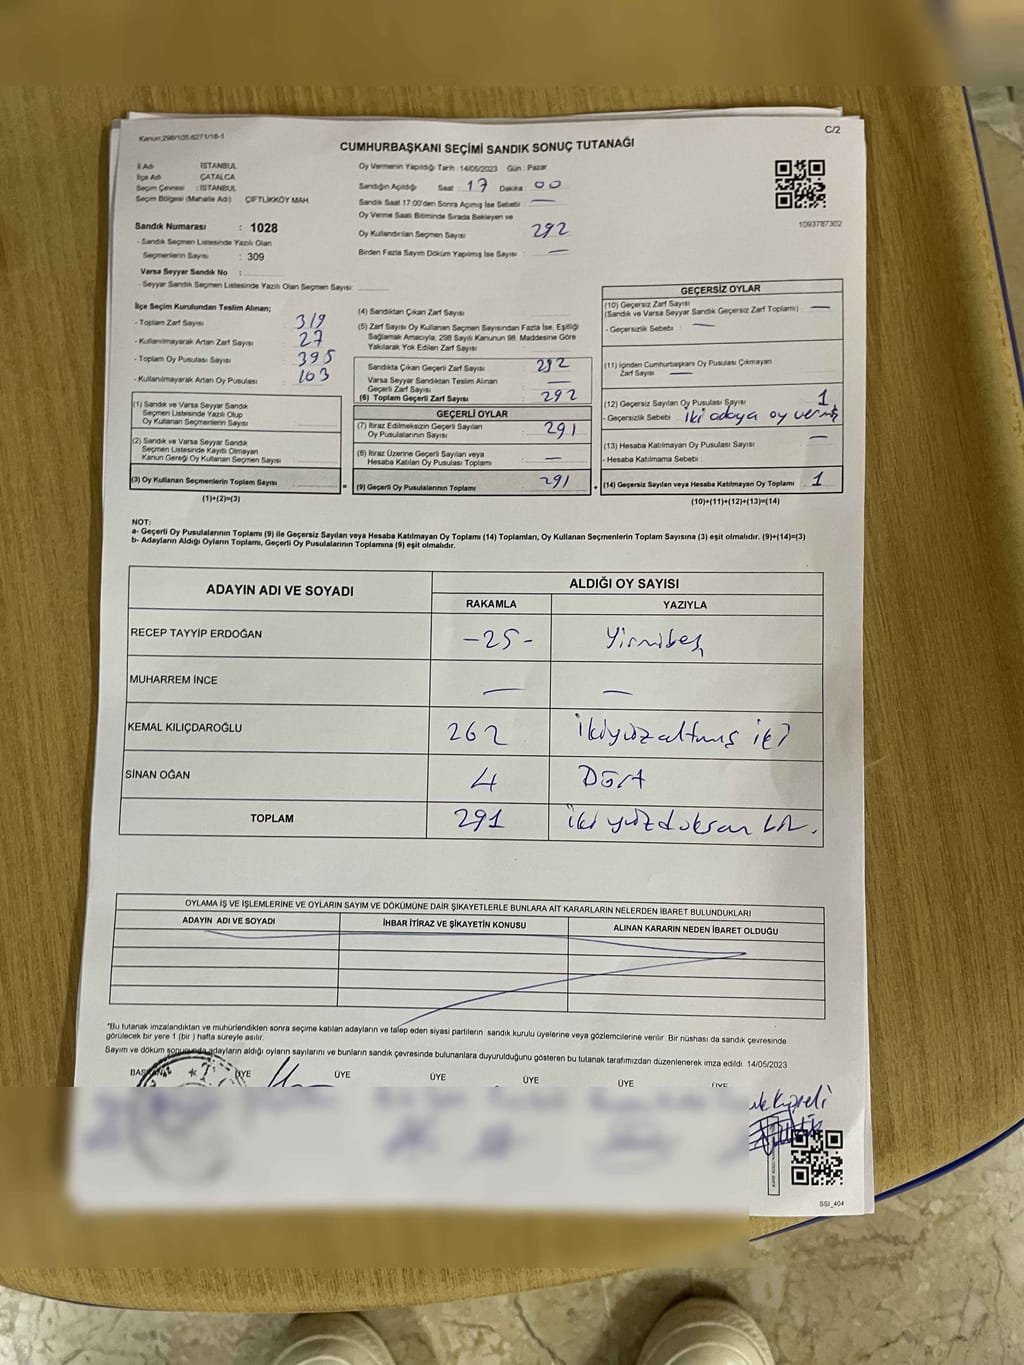 Kanun:298/105:6271/18-1
C/2
CUMHURBAŞKANI SEÇİMİ SANDIK SONUÇ TUTANAĞI
İl Adı : İSTANBUL
İlçe Adı : ÇATALCA
Seçim Çevresi : İSTANBUL
Seçim Bölgesi (Mahalle Adı) ÇİFTLİKKÖY MAH.
Sandık Numarası : 1028
- Sandık Seçmen Listesinde Yazılı Olan
Seçmenlerin Sayısı : 309
Varsa Seyyar Sandık No :
- Seyyar Sandık Seçmen Listesinde Yazılı Olan Seçmen Sayısı:
Oy Vermenin Yapıldığı Tarih :14/05/2023 Gün : Pazar
Sandığın Açıldığı Saat : 17 Dakika : 00
Sandık Saat 17.00'den Sonra Açımış İse Sebebi : —
Oy Verme Saati Bitiminde Sırada Bekleyen ve
Oy Kullandırılan Seçmen Sayısı : 292
Birden Fazla Sayım Döküm Yapılmış İse Sayısı : —
1093787302
İlçe Seçim Kurulundan Teslim Alınan;
- Toplam Zarf Sayısı : 319
- Kullanılmayarak Artan Zarf Sayısı : 27
- Toplam Oy Pusulası Sayısı : 395
- Kullanılmayarak Artan Oy Pusulası : 103
(1) Sandık ve Varsa Seyyar Sandık
Seçmen Listesinde Yazılı Olup
Oy Kullanan Seçmenlerin Sayısı :
(2) Sandık ve Varsa Seyyar Sandık
Seçmen Listesinde Kayıtlı Olmayan
Kanun Gereği Oy Kullanan Seçmen Sayısı :
(3) Oy Kullanan Seçmenlerin Toplam Sayısı :
(1)+(2)=(3)
(4) Sandıktan Çıkan Zarf Sayısı :
(5) Zarf Sayısı Oy Kullanan Seçmen Sayısından Fazla İse, Eşitliği
Sağlamak Amacıyla, 298 Sayılı Kanunun 98. Maddesine Göre
Yakılarak Yok Edilen Zarf Sayısı :
Sandıkta Çıkan Geçerli Zarf Sayısı : 292
Varsa Seyyar Sandıktan Teslim Alınan
Geçerli Zarf Sayısı : —
(6) Toplam Geçerli Zarf Sayısı : 292
GEÇERLİ OYLAR
(7) İtiraz Edilmeksizin Geçerli Sayılan
Oy Pusulalarının Sayısı : 291
(8) İtiraz Üzerine Geçerli Sayılan veya
Hesaba Katılan Oy Pusulası Toplamı : —
= (9) Geçerli Oy Pusulalarının Toplamı : 291 +
GEÇERSİZ OYLAR
(10) Geçersiz Zarf Sayısı : —
(Sandık ve Varsa Seyyar Sandık Geçersiz Zarf Toplamı)
- Geçersizlik Sebebi : —
(11) İçinden Cumhurbaşkanı Oy Pusulası Çıkmayan
Zarf Sayısı : —
(12) Geçersiz Sayılan Oy Pusulası Sayısı : 1
- Geçersizlik Sebebi : iki adaya oy vermiş
(13) Hesaba Katılmayan Oy Pusulası Sayısı : —
- Hesaba Katılmama Sebebi :
(14) Geçersiz Sayılan veya Hesaba Katılmayan Oy Toplamı : 1
(10)+(11)+(12)+(13)=(14)
NOT:
a- Geçerli Oy Pusulalarının Toplamı (9) ile Geçersiz Sayılan veya Hesaba Katılmayan Oy Toplamı (14) Toplamları, Oy Kullanan Seçmenlerin Toplam Sayısına (3) eşit olmalıdır. (9)+(14)=(3)
b- Adayların Aldığı Oyların Toplamı, Geçerli Oy Pusulalarının Toplamına (9) eşit olmalıdır.
ADAYIN ADI VE SOYADI ALDIĞI OY SAYISI
RAKAMLA YAZIYLA
RECEP TAYYİP ERDOĞAN -25- Yirmibeş
MUHARREM İNCE — —
KEMAL KILIÇDAROĞLU 262 ikiyüzaltmış iki
SİNAN OĞAN 4 Dört
TOPLAM 291 iki yüzdoksan bir.
OYLAMA İŞ VE İŞLEMLERİNE VE OYLARIN SAYIM VE DÖKÜMÜNE DAİR ŞİKAYETLERLE BUNLARA AİT KARARLARIN NELERDEN İBARET BULUNDUKLARI
ADAYIN ADI VE SOYADI İHBAR İTİRAZ VE ŞİKAYETİN KONUSU ALINAN KARARIN NEDEN İBARET OLDUĞU
"Bu tutanak imzalandıktan ve mühürlendikten sonra seçime katılan adayların ve talep eden siyasi partilerin sandık kurulu üyelerine veya gözlemcilerine verilir. Bir nüshası da sandık çevresinde
görülecek bir yere 1 (bir ) hafta süreyle asılır.
Sayım ve döküm sonucunda adayların aldığı oyların sayılarını ve bunların sandık çevresinde bulunanlara duyurulduğunu gösteren bu tutanak tarafımızdan düzenlenerek imza edildi. 14/05/2023
ÜYE ÜYE ÜYE ÜYE ÜYE ÜYE
SSI_404